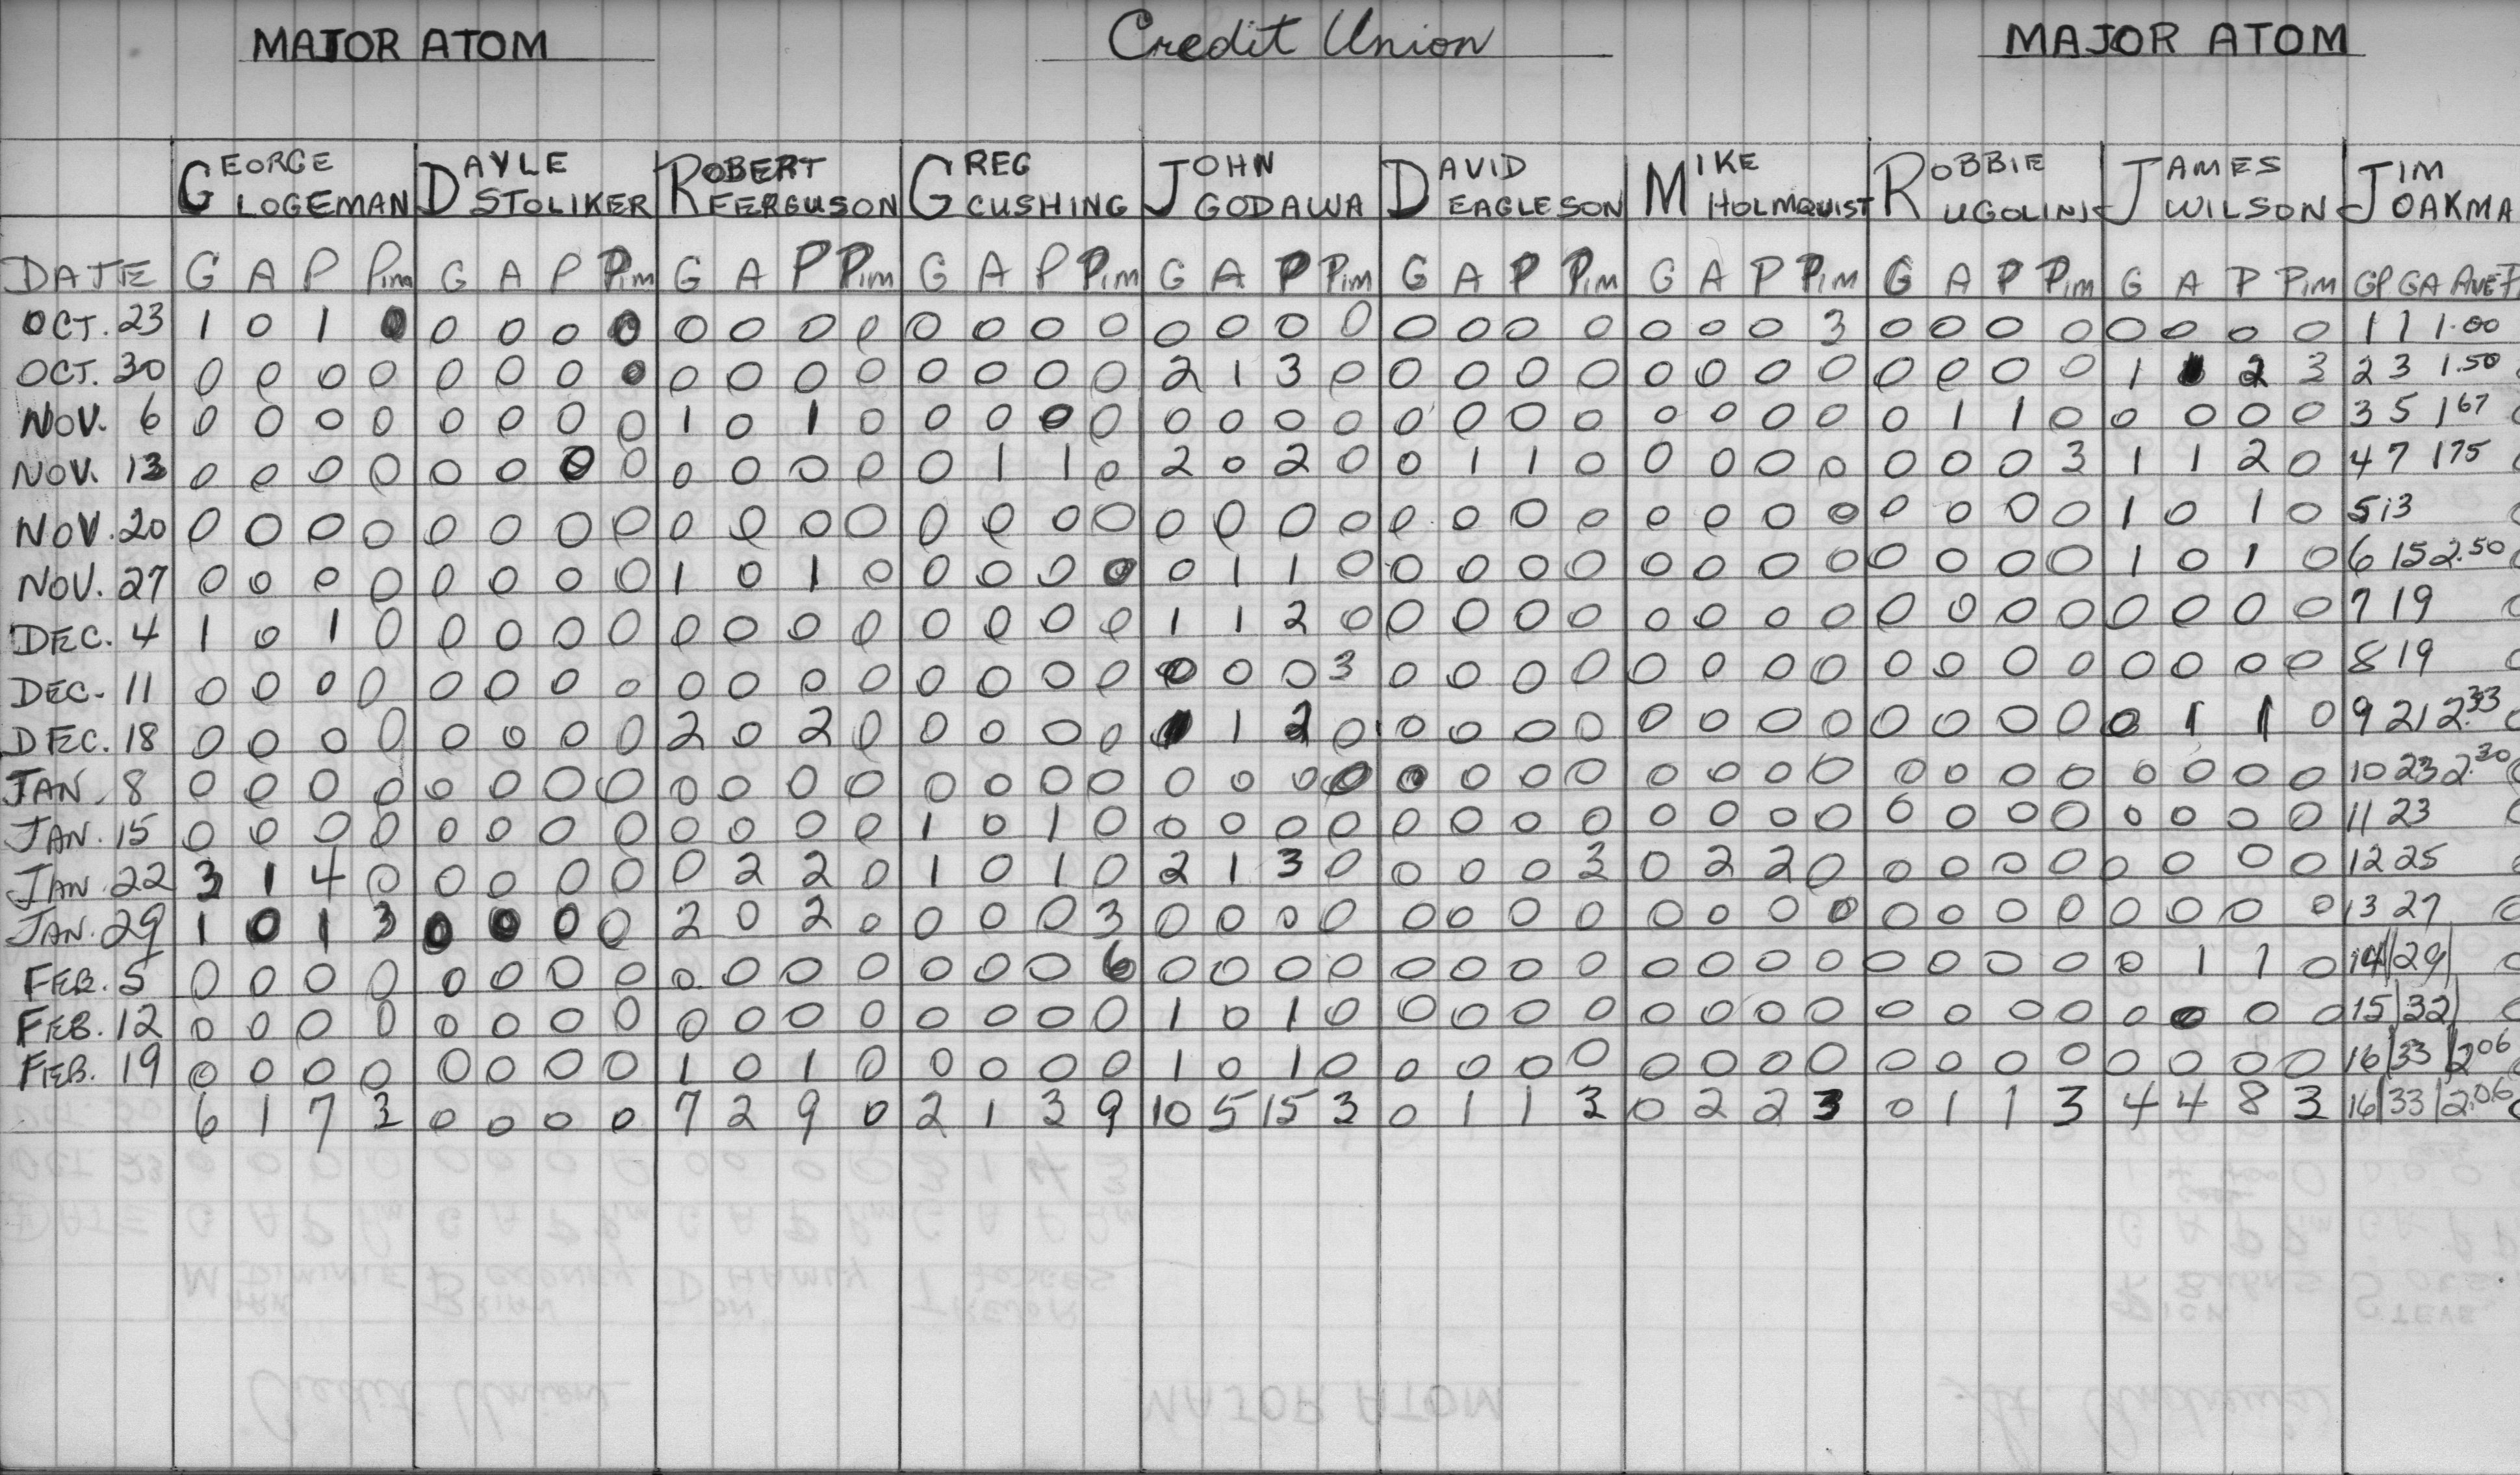 MAJOR ATOM Credit Union MAJOR ATOM
GEORGE LOGEMAN DAYLE STOLIKER ROBERT FERGUSON GREG CUSHING JOHN GODAWA DAVID EAGLESON MIKE HOLMQUIST ROBBIE UGOLINI JAMES WILSON JIM OAKMA
DATE G A P Pim G A P Pim G A P Pim G A P Pim G A P Pim G A P Pim G A P Pim G A P Pim G A P Pim GP GA AVE
OCT. 23 1 0 1 0 0 0 0 0 0 0 0 0 0 0 0 0 0 0 0 0 0 0 0 0 0 0 0 3 0 0 0 0 0 0 0 0 1 1 1.00
OCT. 30 0 0 0 0 0 0 0 0 0 0 0 0 0 0 0 0 2 1 3 0 0 0 0 0 0 0 0 0 0 0 0 0 1 1 2 3 2 3 1.50
NOV. 6 0 0 0 0 0 0 0 0 1 0 1 0 0 0 0 0 0 0 0 0 0 0 0 0 0 0 0 0 0 1 1 0 0 0 0 0 3 5 1 67
NOV. 13 0 0 0 0 0 0 0 0 0 0 0 0 0 1 1 0 2 0 2 0 0 1 1 0 0 0 0 0 0 0 0 3 1 1 2 0 4 7 1 75
NOV. 20 0 0 0 0 0 0 0 0 0 0 0 0 0 0 0 0 0 0 0 0 0 0 0 0 0 0 0 0 0 0 0 0 1 0 1 0 5 13
NOV. 27 0 0 0 0 0 0 0 0 1 0 1 0 0 0 0 0 0 1 1 0 0 0 0 0 0 0 0 0 0 0 0 0 1 0 1 0 6 15 2.50
DEC. 4 1 0 1 0 0 0 0 0 0 0 0 0 0 0 0 0 1 1 2 0 0 0 0 0 0 0 0 0 0 0 0 0 0 0 0 0 7 19
DEC. 11 0 0 0 0 0 0 0 0 0 0 0 0 0 0 0 0 0 0 0 3 0 0 0 0 0 0 0 0 0 0 0 0 0 0 0 0 8 19
DEC. 18 0 0 0 0 0 0 0 0 2 0 2 0 0 0 0 0 1 1 2 0 0 0 0 0 0 0 0 0 0 0 0 0 0 1 1 0 9 21 2.33
JAN. 8 0 0 0 0 0 0 0 0 0 0 0 0 0 0 0 0 0 0 0 0 0 0 0 0 0 0 0 0 0 0 0 0 0 0 0 0 10 23 2.30
JAN. 15 0 0 0 0 0 0 0 0 0 0 0 0 1 0 1 0 0 0 0 0 0 0 0 0 0 0 0 0 0 0 0 0 0 0 0 0 11 23
JAN. 22 3 1 4 0 0 0 0 0 0 2 2 0 1 0 1 0 2 1 3 0 0 0 0 3 0 2 2 0 0 0 0 0 0 0 0 0 12 25
JAN. 29 1 0 1 3 0 0 0 0 2 0 2 0 0 0 0 3 0 0 0 0 0 0 0 0 0 0 0 0 0 0 0 0 0 0 0 0 13 27
FEB. 5 0 0 0 0 0 0 0 0 0 0 0 0 0 0 0 6 0 0 0 0 0 0 0 0 0 0 0 0 0 0 0 0 0 1 1 0 14 29
FEB. 12 0 0 0 0 0 0 0 0 0 0 0 0 0 0 0 0 1 0 1 0 0 0 0 0 0 0 0 0 0 0 0 0 0 0 0 0 15 32
FEB. 19 0 0 0 0 0 0 0 0 1 0 1 0 0 0 0 0 1 0 1 0 0 0 0 0 0 0 0 0 0 0 0 0 0 0 0 0 16 33 2 06
6 1 7 3 0 0 0 0 7 2 9 0 2 1 3 9 10 5 15 3 0 1 1 3 0 2 2 3 0 1 1 3 4 4 8 3 16 33 2.06